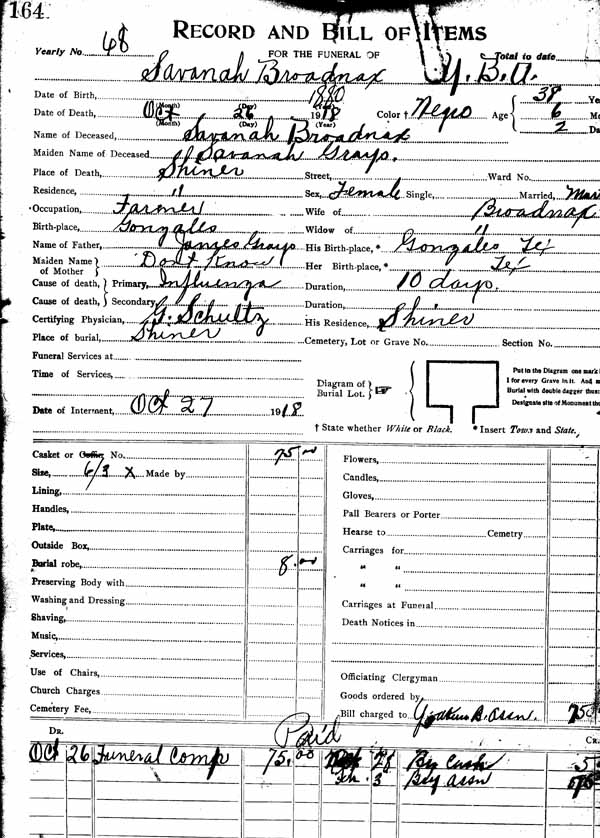 164.
RECORD AND BILL OF ITEMS
Yearly No. 68 FOR THE FUNERAL OF Total to date
Savanah Broadnax Y.B.A.
Date of Birth, (Month) (Day) 1880 (Year)
Date of Death, Oct 26 1918 Color † Negro Age 38 6 2
(Month) (Day) (Year)
Name of Deceased, Savanah Broadnax
Maiden Name of Deceased Savanah Grays.
Place of Death, Shiner Street, Ward No.
Residence, " Sex, Female Single, Married,
Occupation, Farmer Wife of Broadnax
Birth-place, Gonzales Widow of "
Name of Father, James Grays His Birth-place, * Gonzales Tex
Maiden Name of Mother Don't Know Her Birth-place, * Tex
Cause of death, Primary, Influenza Duration, 10 days.
Cause of death, Secondary, Duration,
Certifying Physician, G. Schultz His Residence, Shiner
Place of burial, Shiner Cemetery, Lot or Grave No. Section No.
Funeral Services at
Time of Services,
Diagram of Burial Lot.
Put in the Diagram one mark
I for every Grave in it. And
Burial with double dagger thus
Designate site of Monument
Date of Interment, Oct 27 1918
† State whether White or Black. * Insert Town and State,
Casket or Coffin No. 75.00 Flowers,
Size, 6/3 X Made by Candles,
Lining, Gloves,
Handles, Pall Bearers or Porter
Plate, Hearse to Cemetry
Outside Box, Carriages for
Burial robe, 8.00 " "
Preserving Body with " "
Washing and Dressing Carriages at Funeral
Shaving, Death Notices in
Music,
Services,
Use of Chairs, Officiating Clergyman
Church Charges Goods ordered by
Cemetery Fee, Bill charged to Yoakum B. Assn. 75
DR. Paid CR.
Oct 26 Funeral Comp 75.00 28 By Cash 5
Feb. 3 By Assn